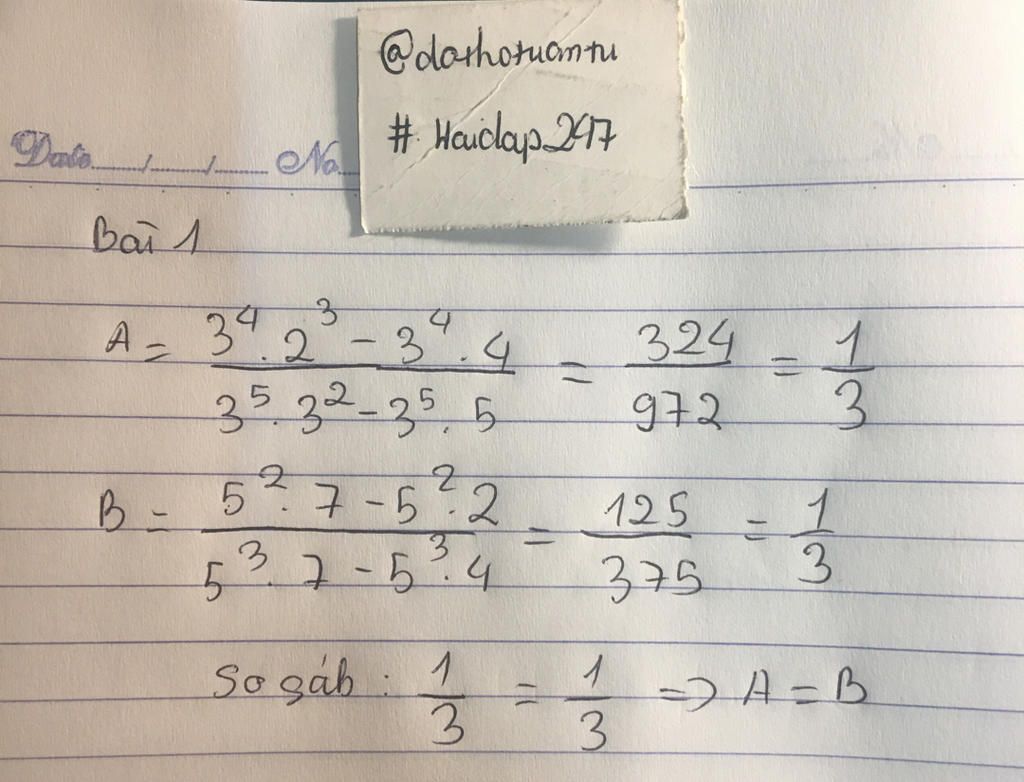 @dathotuantu
# Haidap247
Date...../...../..... No...
Bài 1
A = (3⁴.2³ - 3⁴.4)/(3⁵.3² - 3⁵.5) = 324/972 = 1/3
B = (5².7 - 5².2)/(5³.7 - 5³.4) = 125/375 = 1/3
So sáb : 1/3 = 1/3 => A = B